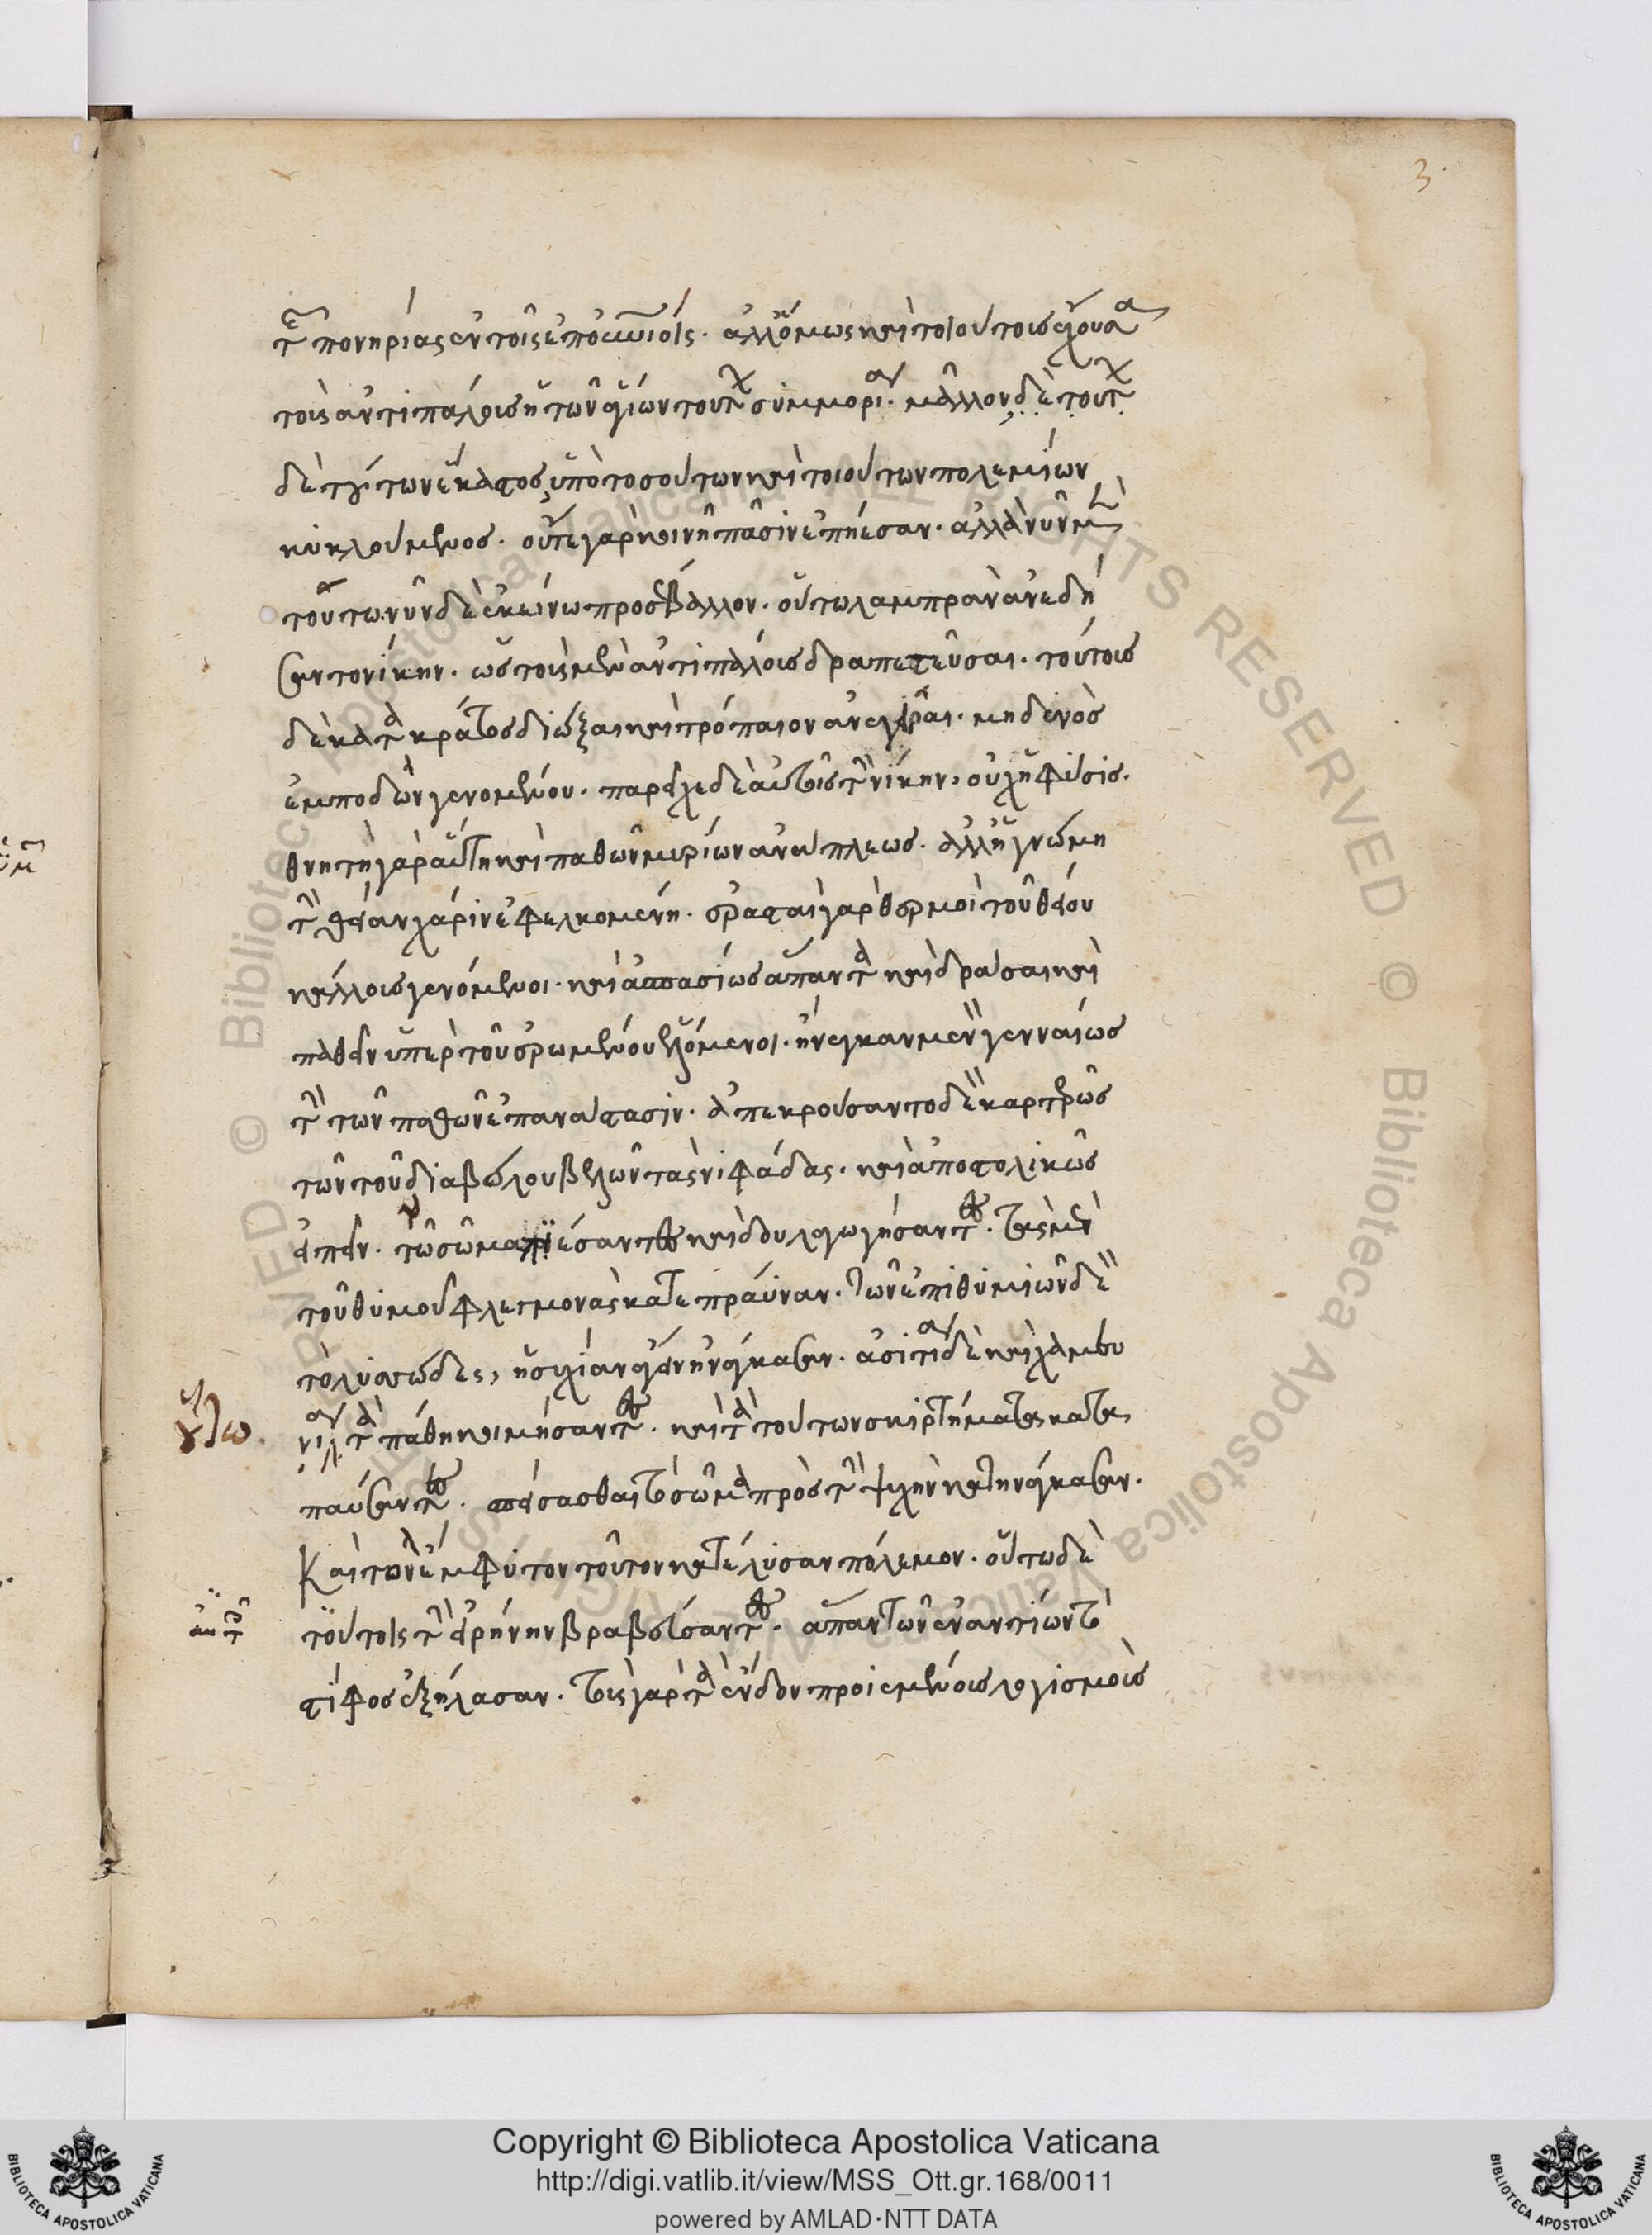 3.
τῆς πονηρίας ἐν τοῖς ἑπομένοις. ἀλλ' ὅμως καὶ τοιούτοις ἔχουσα
τοῖς ἀντιπάλοις ἡ τῶν ἁγίων τούτων συμμορία. μᾶλλον δὲ τούτων
δὲ τούτων ἕκαστος, ὑπὸ τοσούτων καὶ τοιούτων πολεμίων
κυκλούμενος. οὔτε γὰρ κοινῇ πᾶσιν ἐπήεσαν. ἀλλὰ νῦν μὲν
τούτω. νῦν δὲ ἐκείνω προσέβαλλον. οὕτω λαμπρὰν ἀνεδή
σαντο νίκην. ὡς τοὺς μὲν ἀντιπάλους δραπετεῦσαι. τούτους
δὲ κατὰ κράτος διῶξαι καὶ τρόπαιον ἀνεγεῖραι. μηδενὸς
ἐμποδὼν γενομένου. παρέσχε δὲ αὐτοῖς τὴν νίκην, οὐχ ἡ φύσις.
θνητὴ γὰρ αὕτη καὶ παθῶν μυρίων ἀνάπλεως. ἀλλ' ἡ γνώμη
τὴν θείαν χάριν ἐφελκομένη. ἐρασταὶ γὰρ θερμοὶ τοῦ θείου
κάλλους γενόμενοι. καὶ ἀσπασίως ἅπαντα καὶ δρᾶσαι καὶ
παθεῖν ὑπὲρ τοῦ ἐρωμένου ἑλόμενοι. ἤνεγκαν μὲν γενναίως
τὴν τῶν παθῶν ἐπανάστασιν. ἀπεκρούσαντο δὲ καρτερῶς
τῶν τοῦ διαβόλου βελῶν τὰς νιφάδας. καὶ ἀποστολικῶς
εἰπεῖν. τὸ σῶμα πιέσαντες καὶ δουλαγωγήσαντες. τὰς μὲν
τοῦ θυμοῦ φλεγμονὰς κατεπράϋναν. τῶν ἐπιθυμιῶν δὲ
τὸ λυσσῶδες, ἡσυχίαν ἄγειν ἠνάγκασαν. ἀσιτία δὲ καὶ χαμευ
νία τὰ πάθη κοιμήσαντες. καὶ τὰ τούτων σκιρτήματα κατα
παύσαντες. σπείσασθαι τὸ σῶμα πρὸς τὴν ψυχὴν κατηνάγκασαν.
Καὶ τὸν ἔμφυτον τοῦτον κατέλυσαν πόλεμον. οὕτω δὲ
τούτοις τὴν εἰρήνην βραβεύσαντες. ἅπαν τῶν ἐναντίων τὸ
στίφος ἐξήλασαν. τοὺς γὰρ τὰ ἔνδον προϊεμένους λογισμοὺς
Copyright © Biblioteca Apostolica Vaticana
http://digi.vatlib.it/view/MSS_Ott.gr.168/0011
powered by AMLAD·NTT DATA
BIBLIOTECA APOSTOLICA VATICANA
BIBLIOTECA APOSTOLICA VATICANA